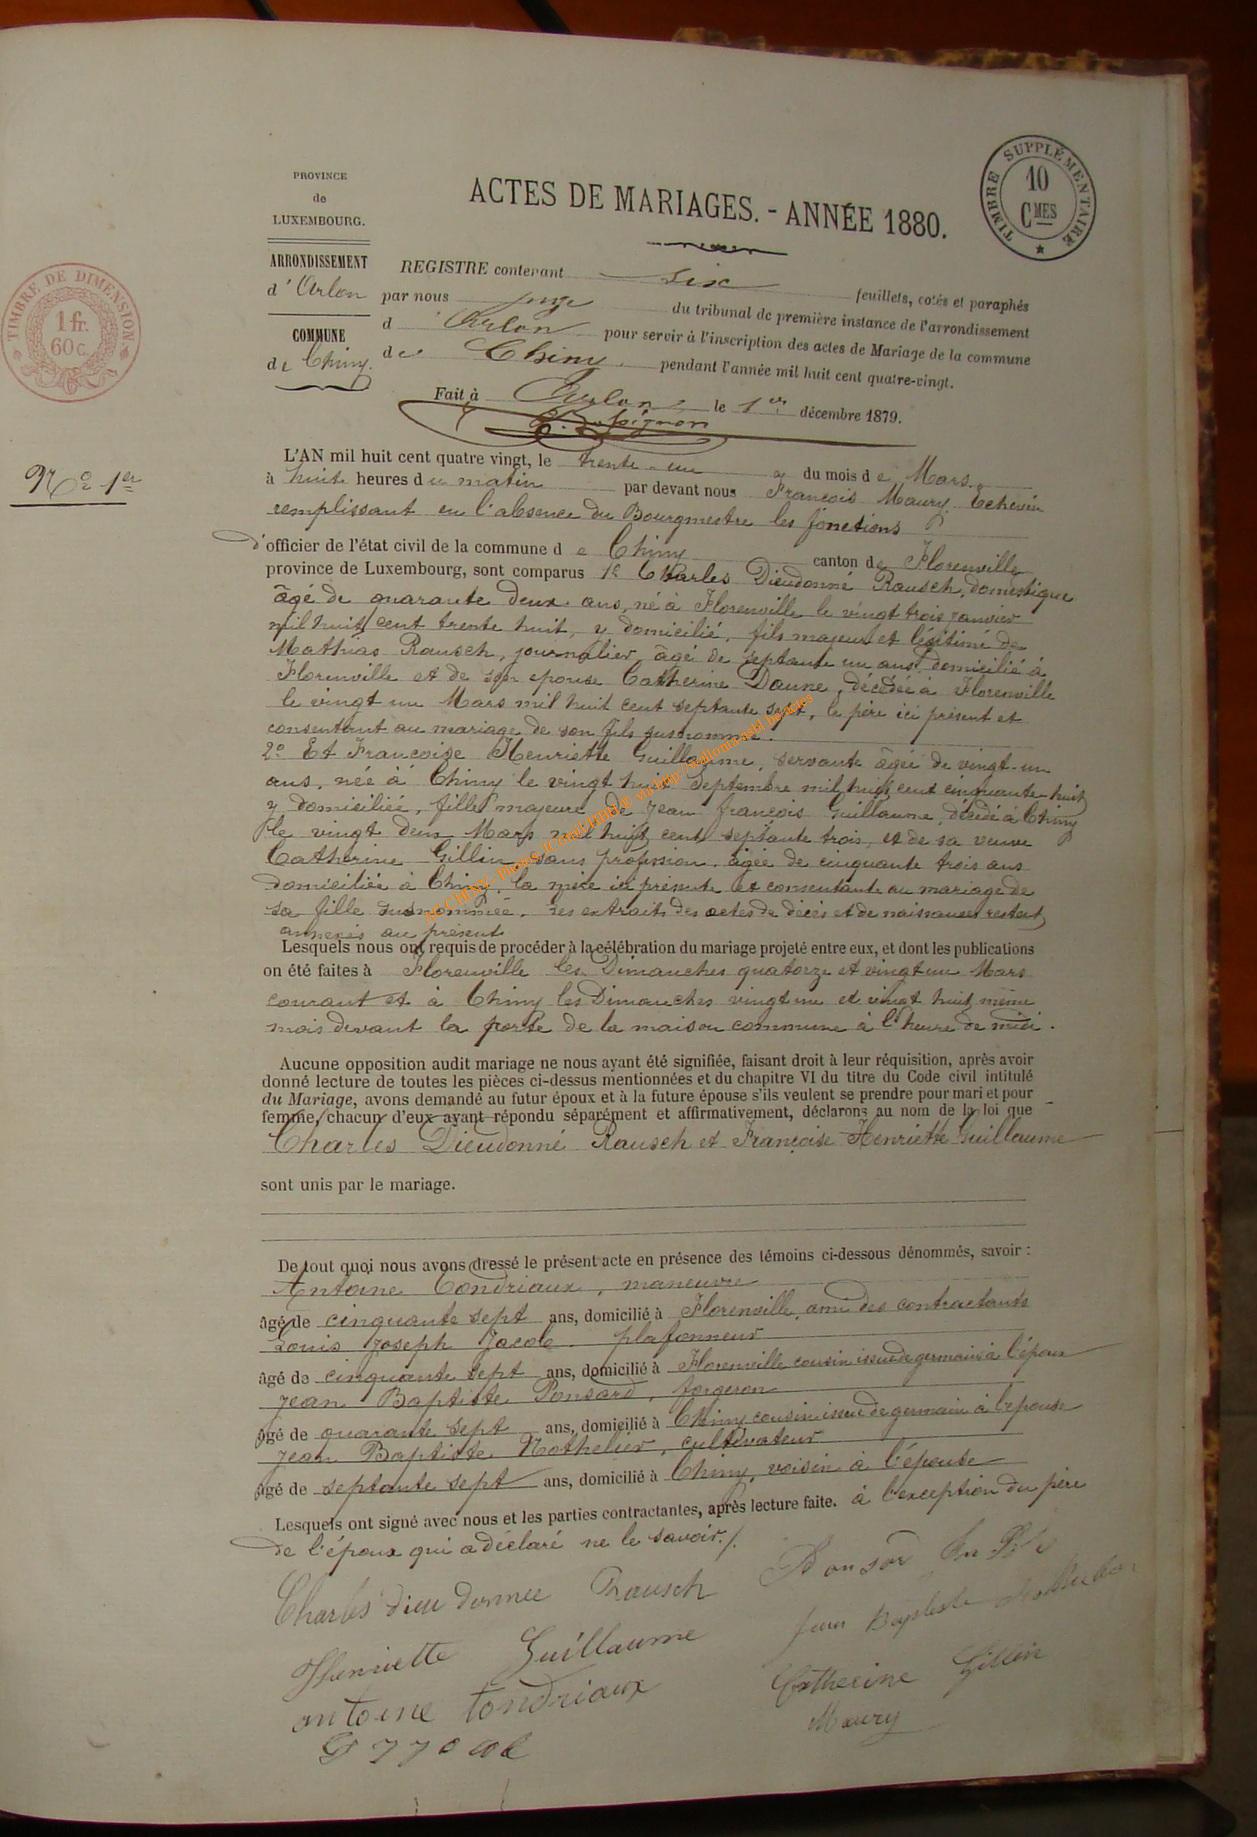 PROVINCE
de
LUXEMBOURG.
ARRONDISSEMENT
d'Arlon
COMMUNE
de Chiny.
ACTES DE MARIAGES. - ANNÉE 1880.
TIMBRE SUPPLÉMENTAIRE
10
CMES
TIMBRE DE DIMENSION
1 fr.
60 c.
REGISTRE contenant six feuillets, cotés et paraphés
par nous juge du tribunal de première instance de l'arrondissement
d'Arlon pour servir à l'inscription des actes de Mariage de la commune
de Chiny pendant l'année mil huit cent quatre-vingt.
Fait à Arlon le 1er décembre 1879.
No 1er
L'AN mil huit cent quatre vingt, le trente-un du mois de Mars
à huit heures du matin par devant nous François Maury, Echevin
remplissant en l'absence du Bourgmestre les fonctions
d'officier de l'état civil de la commune de Chiny canton de Florenville
province de Luxembourg, sont comparus 1e Charles Dieudonné Rausch, domestique
âgé de quarante deux ans, né à Florenville le vingt trois janvier
mil huit cent trente huit, y domicilié, fils majeur et légitime de
Mathias Rausch, journalier, âgé de septante un ans, domicilié à
Florenville et de son épouse Catherine Daune, décédée à Florenville
le vingt un Mars mil huit cent septante sept, le père ici présent et
consentant au mariage de son fils susnommé.
2e Et Françoise Henriette Guillaume, servante âgée de vingt-un
ans, née à Chiny le vingt huit Septembre mil huit cent cinquante huit
y domiciliée, fille majeure de Jean François Guillaume, décédé à Chiny
le vingt deux Mars mil huit cent septante trois, et de sa veuve
Catherine Gillin, sans profession, âgée de cinquante trois ans
domiciliée à Chiny, la mère ici présente et consentante au mariage de
sa fille susnommée. Les extraits des actes de décès et de naissances restent
annexés au présent.
Lesquels nous ont requis de procéder à la célébration du mariage projeté entre eux, et dont les publications
on été faites à Florenville les Dimanches quatorze et vingt un Mars
courant et à Chiny les Dimanches vingt un et vingt huit même
mois devant la porte de la maison commune à l'heure de midi.
Aucune opposition audit mariage ne nous ayant été signifiée, faisant droit à leur réquisition, après avoir
donné lecture de toutes les pièces ci-dessus mentionnées et du chapitre VI du titre du Code civil intitulé
du Mariage, avons demandé au futur époux et à la future épouse s'ils veulent se prendre pour mari et pour
femme, chacun d'eux ayant répondu séparément et affirmativement, déclarons au nom de la loi que
Charles Dieudonné Rausch et Françoise Henriette Guillaume
sont unis par le mariage.
De tout quoi nous avons dressé le présent acte en présence des témoins ci-dessous dénommés, savoir :
Antoine Tondriaux, maneuvre
âgé de cinquante sept ans, domicilié à Florenville, ami des contractants
Louis Joseph Jacob plafonneur
âgé de cinquante sept ans, domicilié à Florenville cousin issu de germain à l'époux
Jean Baptiste Ponsard, forgeron
âgé de quarante sept ans, domicilié à Chiny cousin issu de germain à l'épouse
Jean Baptiste Hothelier, cultivateur
âgé de septante sept ans, domicilié à Chiny, voisin à l'épouse
Lesquels ont signé avec nous et les parties contractantes, après lecture faite. à l'exception du père
de l'époux qui a déclaré ne le savoir./.
Charles dieudonnee Rausch
Henriette Guillaume
Jean Baptiste
antoine tondriaux
Catherine Gillin
Maury